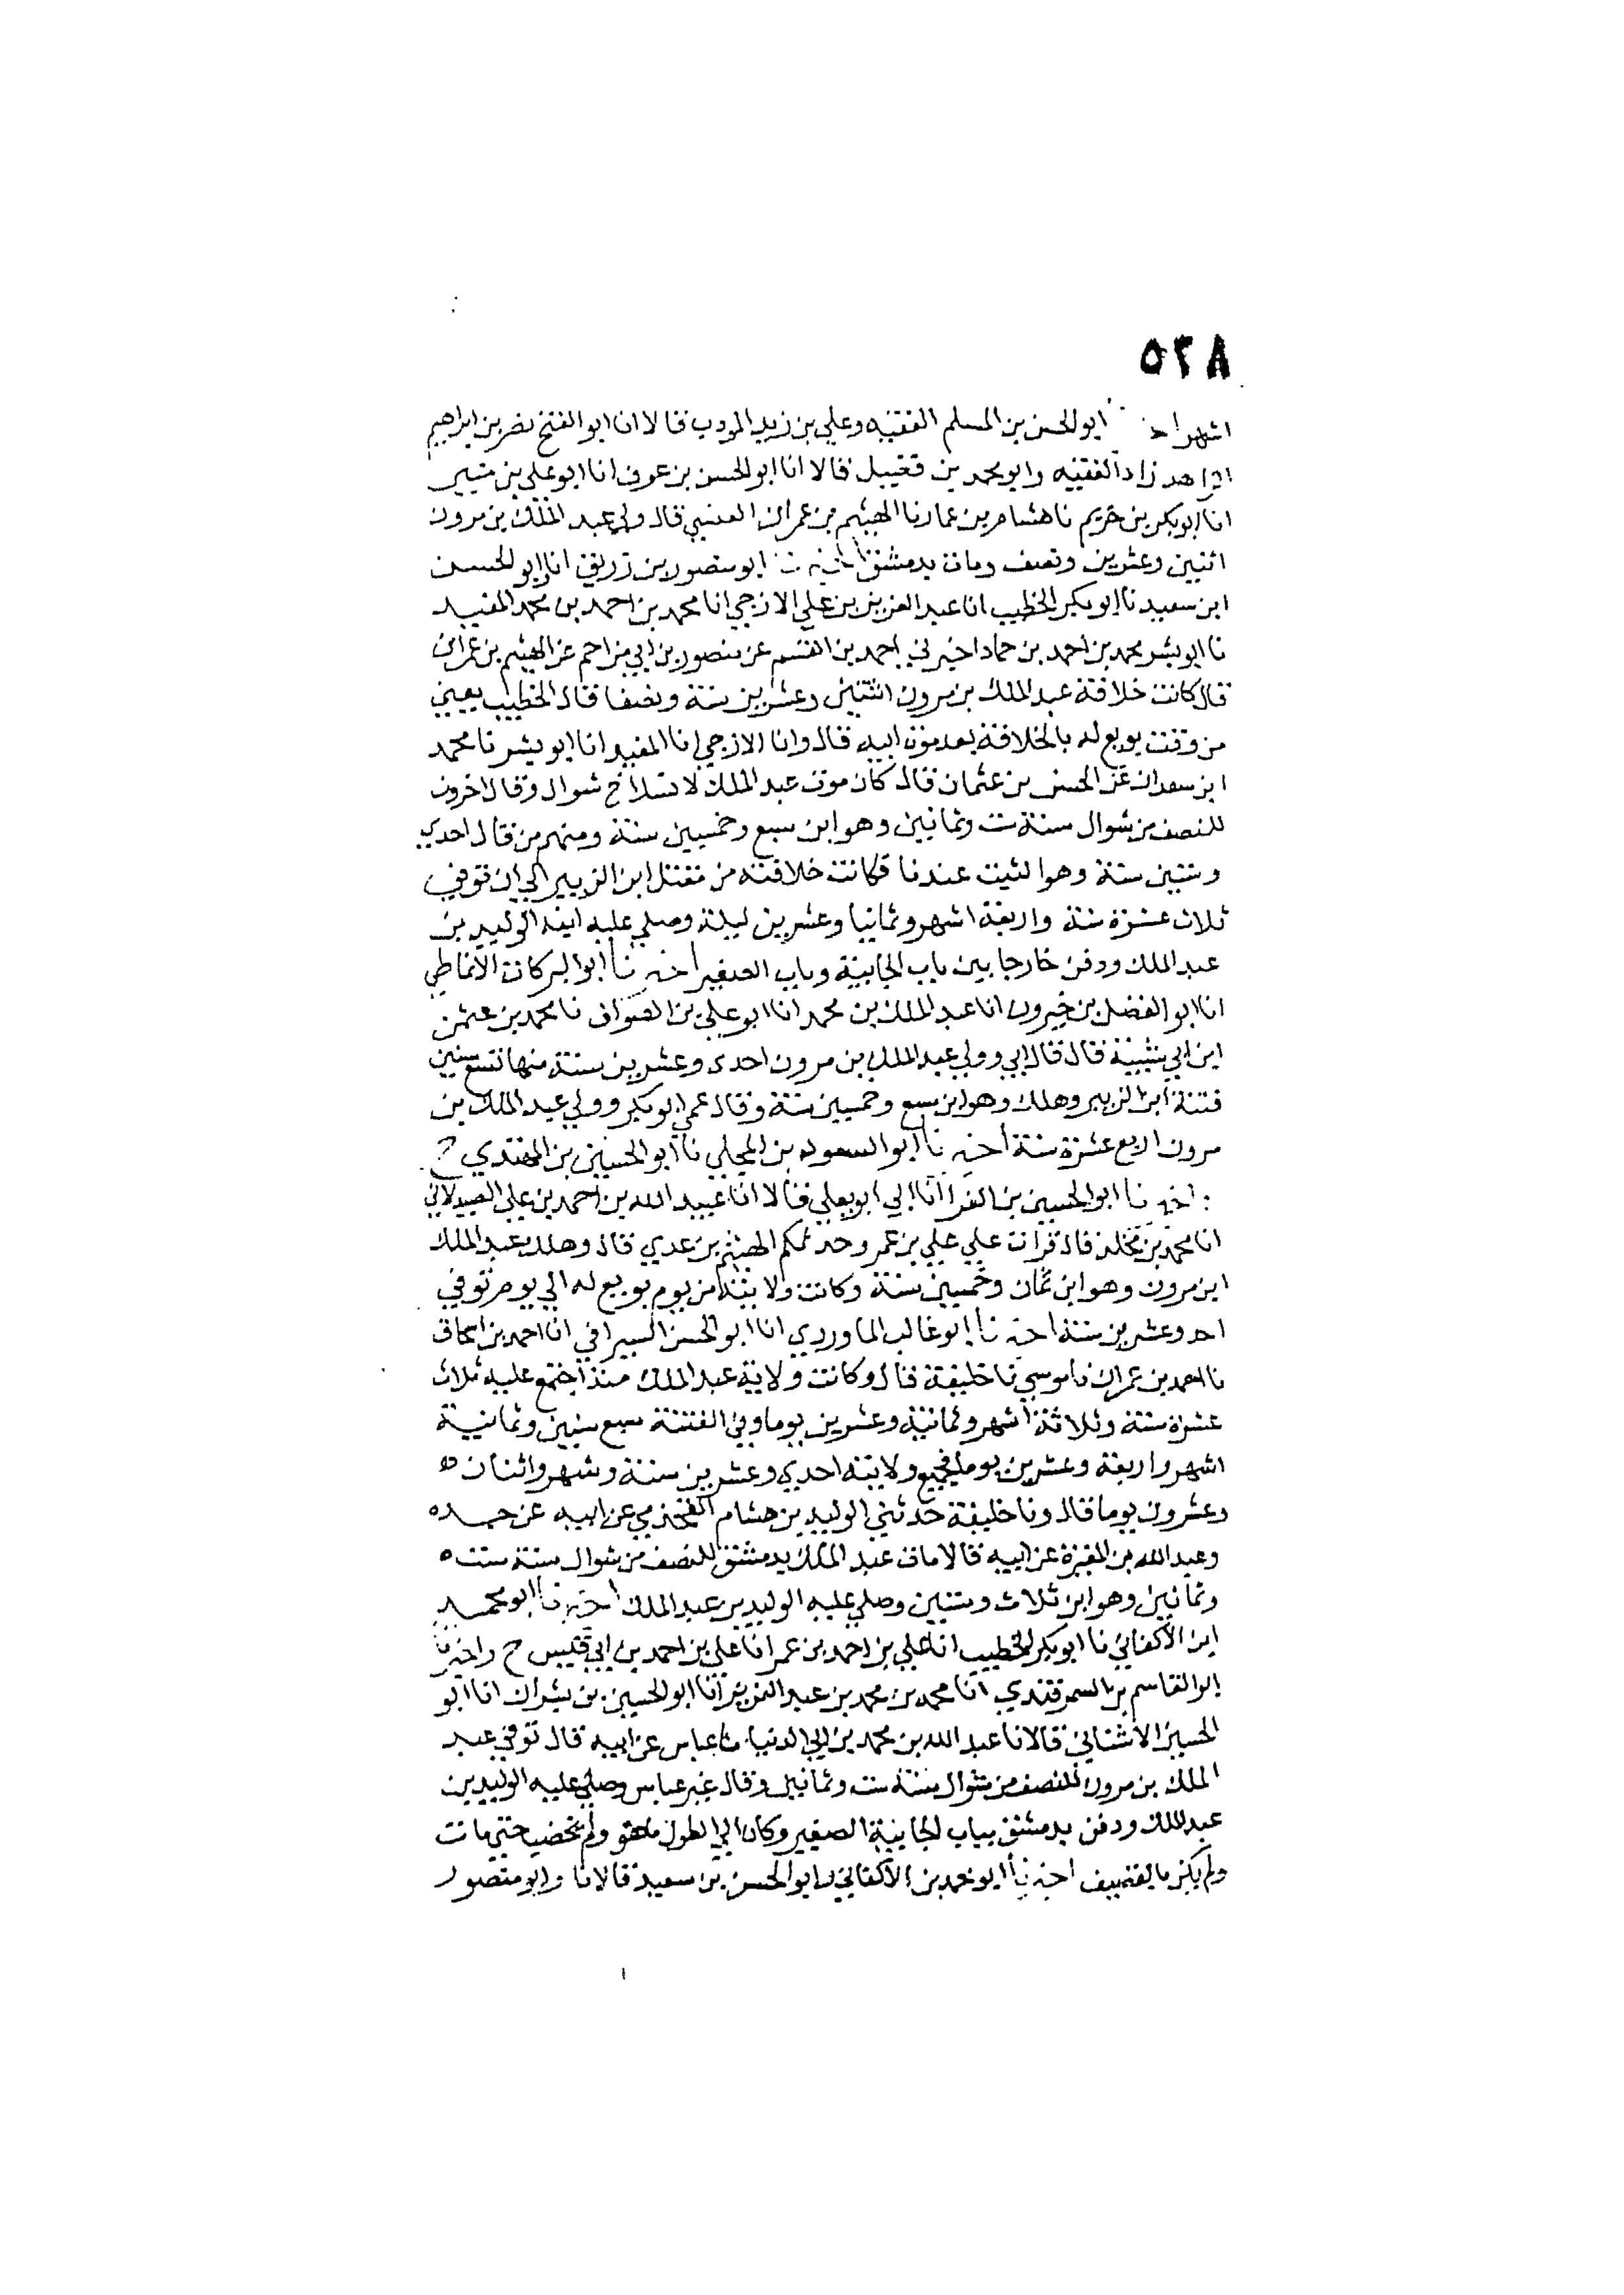 ٥٣٨
اشهر اخـ ابو الحسن بن المسلم الفقيه وعلي بن زيد المودب قالا انا ابو الفتح نصر بن ابراهيم
الزاهد زاد الفقيه وابو محمد بن فضيل قالا انا ابو الحسن بن عوف انا ابو علي بن منير
انا ابو بكر بن خريم نا هشام بن عمار نا الهيثم بن عمران العنسي قال ولي عبد الملك بن مرون
اثنين وعشرين ونصف ومات بدمشق اخبرنا ابو منصور بن زريق انا ابو الحسن
ابن سعيد نا ابو بكر الخطيب انا عبد العزيز بن علي الازجي انا محمد بن احمد بن محمد المفيد
نا ابو بشر محمد بن احمد بن حماد اخبرني احمد بن القسم عن منصور بن ابي مزاحم عن الهيثم بن عمران
قال كانت خلافة عبد الملك بن مرون اثنتين وعشرين سنة ونصفا قال الخطيب يعني
من وقت بويع له بالخلافة بعد موت ابيه قال وانا الازجي انا المفيد انا ابو بشر نا محمد
ابن سعدان عن الحسن بن عثمان قال كان موت عبد الملك لانسلاخ شوال وقال اخرون
للنصف من شوال سنة ست وثمانين وهو ابن سبع وخمسين سنة ومنهم من قال احدي
وستين سنة وهو الثبت عندنا فكانت خلافته من مقتل ابن الزبير الي ان توفي
ثلاث عشرة سنة واربعة اشهر وثمانيا وعشرين ليلة وصلي عليه ابنه الوليد بن
عبد الملك ودفن خارجا بين باب الجابية وباب الصغير اخبرنا ابو البركات الانماطي
انا ابو الفضل بن خيرون انا عبد الملك بن محمد انا ابو علي بن الصواف نا محمد بن عثمن
ابن ابي شيبة قال قال ابي وولي عبد الملك بن مرون احدى وعشرين سنة منها تسع سنين
فتنة ابن الزبير وهلك وهو ابن سبع وخمسين سنة وقال عمي ابو بكر وولي عبد الملك بن
مرون اربع عشرة سنة اخبرنا ابو السعود بن المجلي نا ابو الحسين بن المهتدي ح
اخبرنا ابو الحسين بن الفرا انا ابي ابو يعلي قالا انا عبيد الله بن احمد بن علي الصيدلاني
انا محمد بن مخلد قال قرات علي علي بن عمر وحدثكم الهيثم بن عدي قال وهلك عبد الملك
ابن مرون وهو ابن ثمان وخمسين سنة وكانت ولايته من يوم بويع له الي يوم توفي
احد وعشرين سنة اخبرنا ابو غالب الماوردي انا ابو الحسن السيرافي انا احمد بن اسحاق
نا احمد بن عمران نا موسي نا خليفة قال وكانت ولاية عبد الملك منذ اجتمع عليه ثلاث
عشرة سنة وثلاثة اشهر وثمانية وعشرين يوما وفي الفتنة سبع سنين وثمانية
اشهر واربعة وعشرين يوما فجميع ولايته احدي وعشرين سنة وشهر واثنان
وعشرون يوما قال ونا خليفة حدثني الوليد بن هشام القحذمي عن ابيه عن جده
وعبد الله بن المغيرة عن ابيه قالا مات عبد الملك بدمشق للنصف من شوال سنة ست
وثمانين وهو ابن ثلاث وستين وصلي عليه الوليد بن عبد الملك اخبرنا ابو محمد
ابن الاكفاني نا ابو بكر الخطيب انا علي بن احمد بن عمر انا علي بن احمد بن ابي قيس ح واخبرنا
ابو القاسم بن السمرقندي انا محمد بن محمد بن عبد العزيز انا ابو الحسين بن بشران انا ابو
الحسين الاشناني قالا نا عبد الله بن محمد بن ابي الدنيا نا عباس عن ابيه قال توفي عبد
الملك بن مرون للنصف من شوال سنة ست وثمانين وقال غير عباس وصلي عليه الوليد بن
عبد الملك ودفن بدمشق بباب الجابية الصغير وكان الي الطول ما هو ولم يخضب حتي مات
ولم يكن بالقضيف اخبرنا ابو محمد بن الاكفاني وابو الحسن بن سعيد قالا نا وابو منصور